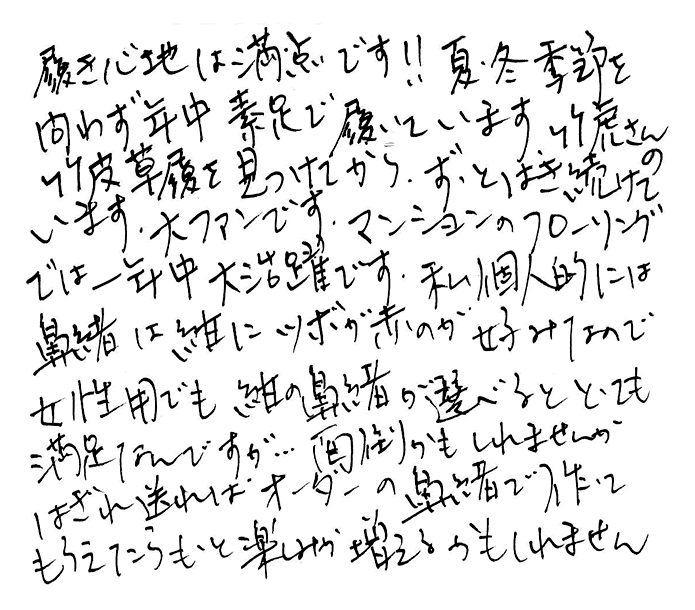 履き心地は満点です!! 夏・冬季節を
問わず年中素足で履いています。竹虎さんの
竹皮草履を見つけてから、ずっとはき続けて
います。大ファンです。マンションのフローリング
では一年中大活躍です。私個人的には
鼻緒は紺にツボが赤のが好みなので
女性用でも紺の鼻緒が選べるととても
満足なんですが… 面倒かもしれませんが
はぎれ送ればオーダーの鼻緒で作って
もらえたらもっと楽しみが増えるかもしれません